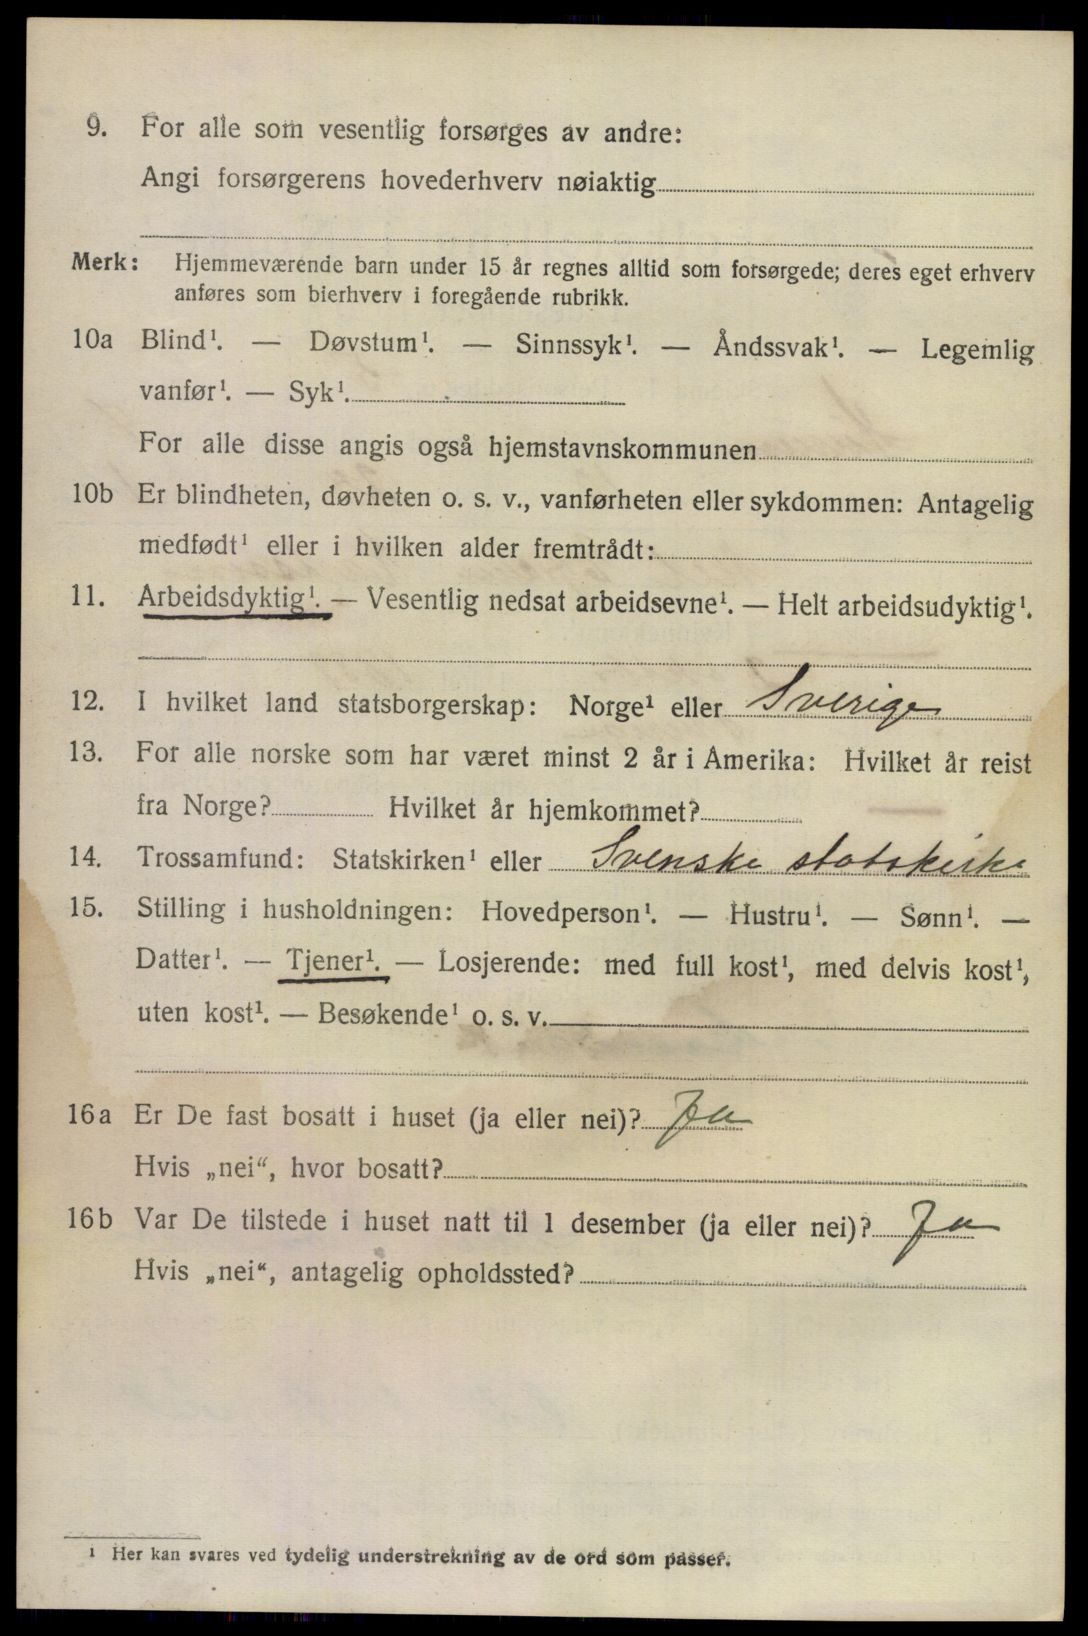 9. For alle som vesentlig forsørges av andre:
Angi forsørgerens hovederhverv nøiaktig
Merk: Hjemmeværende barn under 15 år regnes alltid som forsørgede; deres eget erhverv
anføres som bierhverv i foregående rubrikk.
10a Blind¹. — Døvstum¹. — Sinnssyk¹. — Åndssvak¹. — Legemlig
vanfør¹. — Syk¹.
For alle disse angis også hjemstavnskommunen
10b Er blindheten, døvheten o. s. v., vanførheten eller sykdommen: Antagelig
medfødt¹ eller i hvilken alder fremtrådt:
11. Arbeidsdyktig¹. — Vesentlig nedsat arbeidsevne¹. — Helt arbeidsudyktig¹.
12. I hvilket land statsborgerskap: Norge¹ eller Sverige
13. For alle norske som har været minst 2 år i Amerika: Hvilket år reist
fra Norge? Hvilket år hjemkommet?
14. Trossamfund: Statskirken¹ eller Svenske statskirke
15. Stilling i husholdningen: Hovedperson¹. — Hustru¹. — Sønn¹. —
Datter¹. — Tjener¹. — Losjerende: med full kost¹, med delvis kost¹,
uten kost¹. — Besøkende¹ o. s. v.
16a Er De fast bosatt i huset (ja eller nei)? Ja
Hvis „nei“, hvor bosatt?
16b Var De tilstede i huset natt til 1 desember (ja eller nei)? Ja
Hvis „nei“, antagelig opholdssted?
¹ Her kan svares ved tydelig understrekning av de ord som passer.